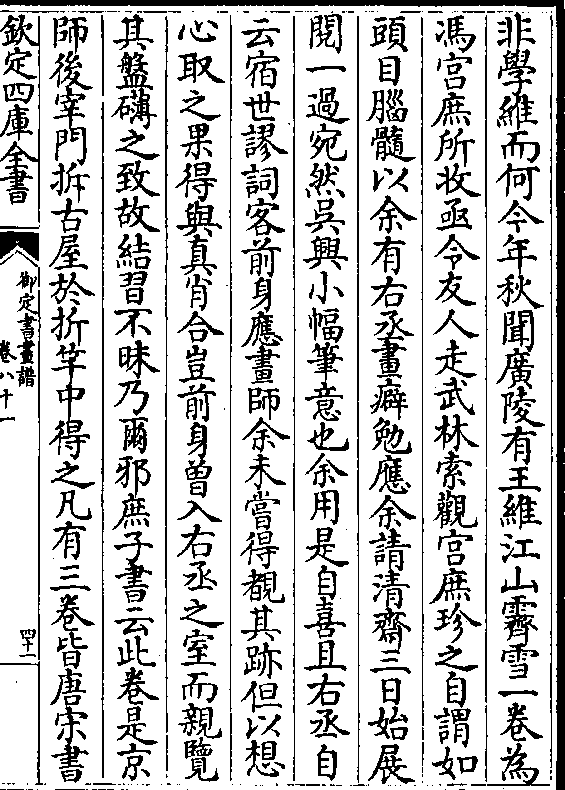 非學維而何今年秋聞廣陵有王維江山霽雪一卷為
馮宮庶所收亟令友人走武林索觀宮庶珍之自謂如
頭目腦髓以余有右丞畫癖勉應余請清齋三日始展
閱一過宛然吳興小幅筆意也余用是自喜且右丞自
云宿世謬詞客前身應畫師余未嘗得覩其跡但以想
心取之果得與真肖合豈前身曽入右丞之室而親覽
其盤礴之致故結習不昧乃爾邪庶子書云此卷是京
師後宰門拆古屋於折竿中得之凡有三卷皆唐宋書
欽定四庫全書
御定書畫譜
卷八十一
四十一